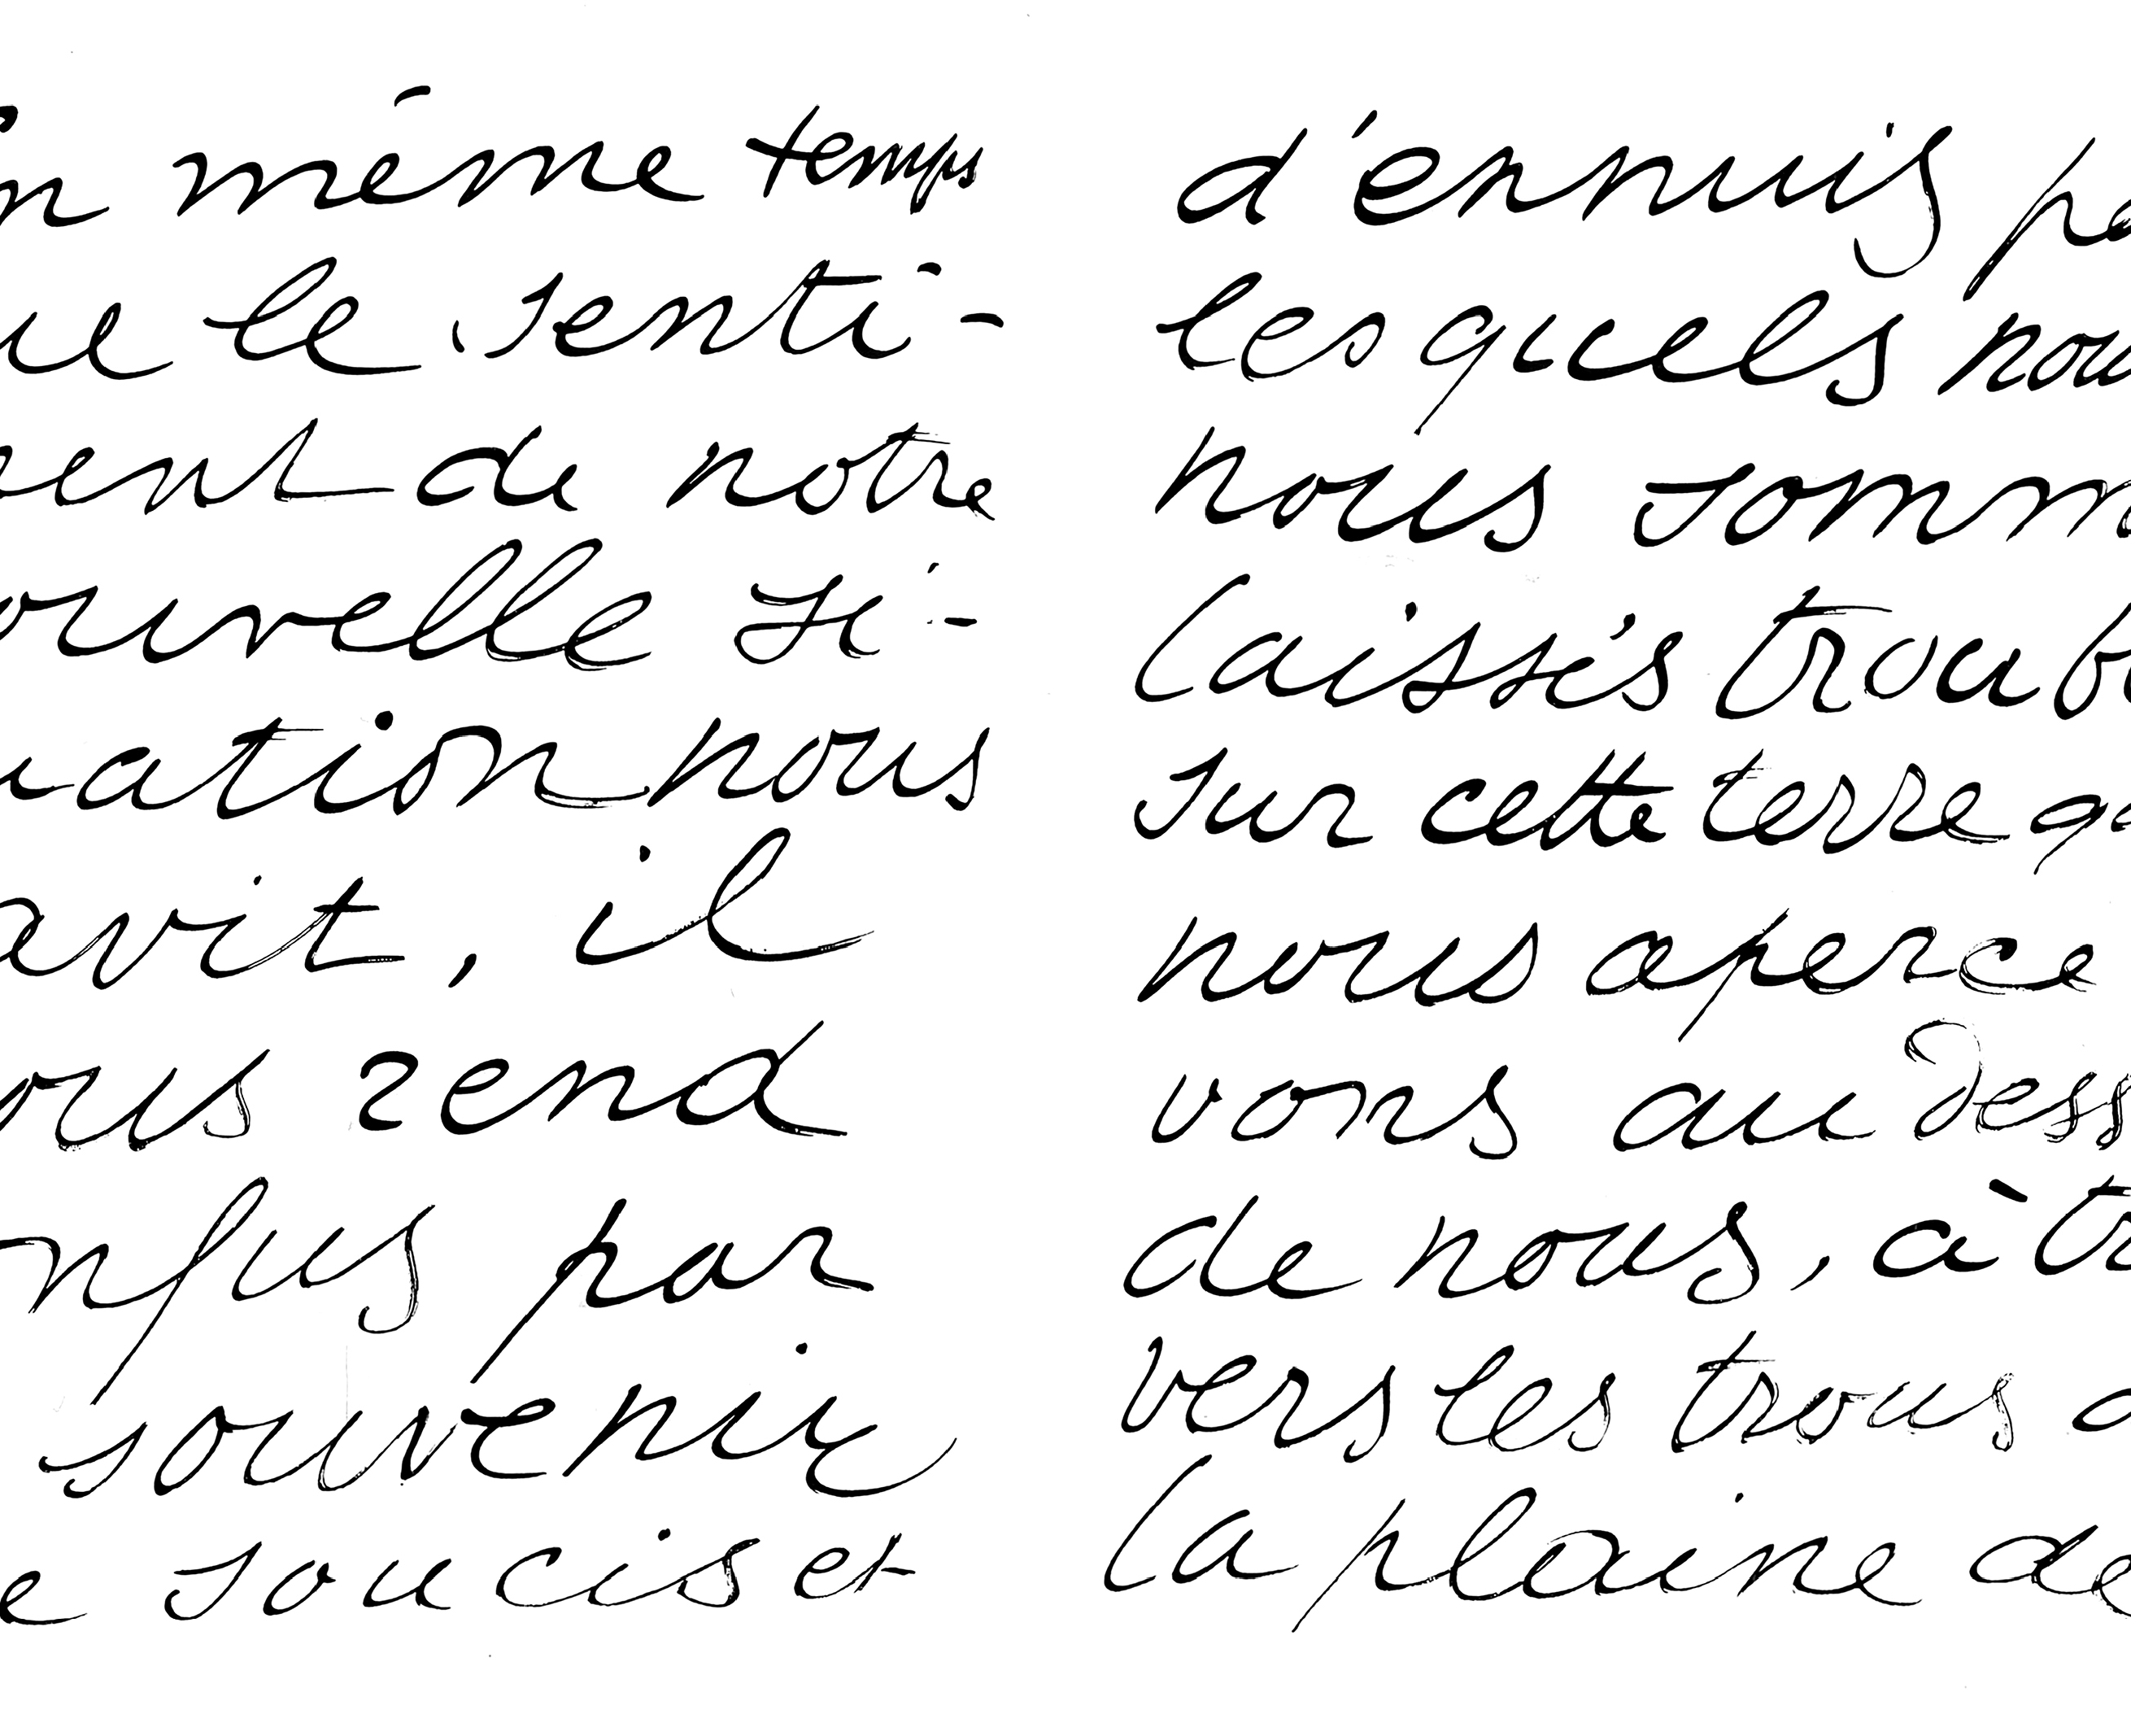 n même temps
ue le senti-
ent de notre
ouvelle si-
uation nous
avit, il
ous rend
onfus par
souvenir
e soucis et
d'ennuis pa
lesquels nou
nous somm
laissés troub
sur cette terre q
nous aperce
vons au dess
de nous, à tr
vers les trous d
la plaine de